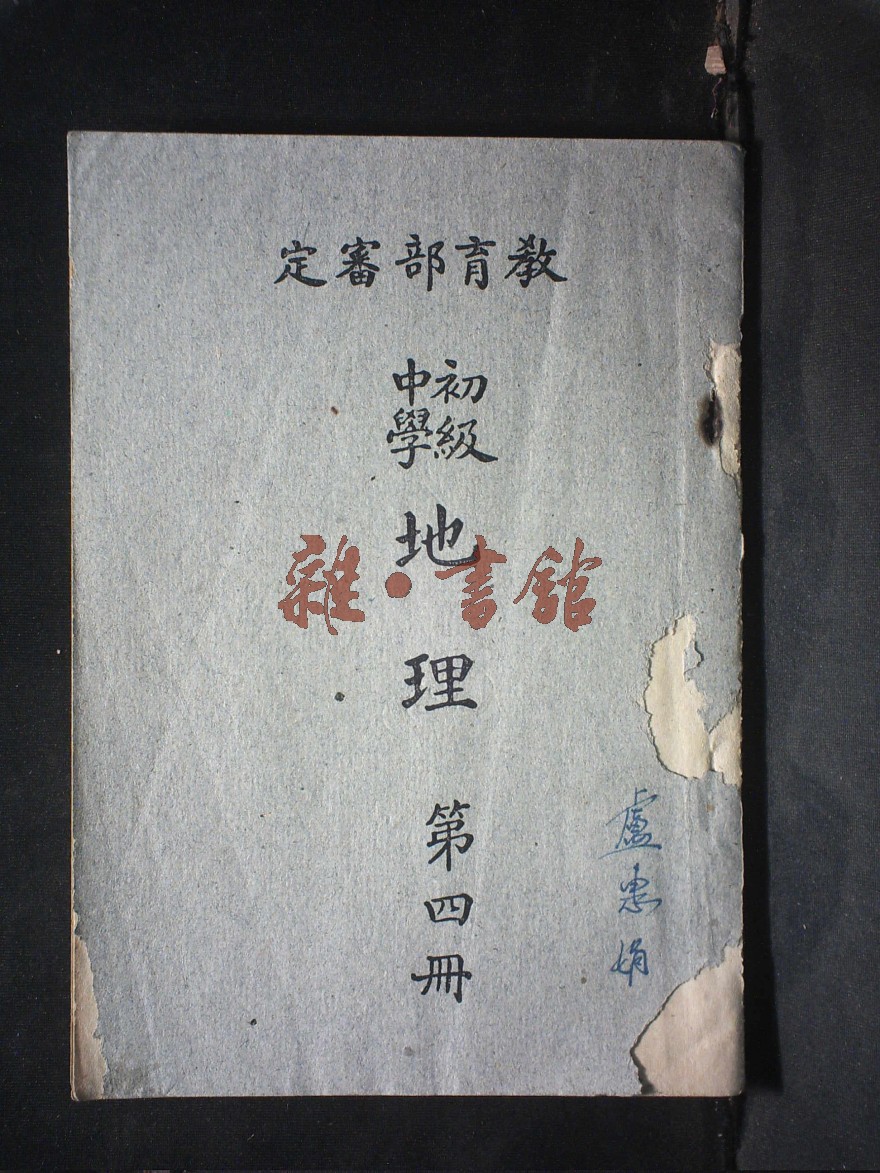 教育部審定
初級
中學
地理
第四冊
雜·書館
盧惠娟